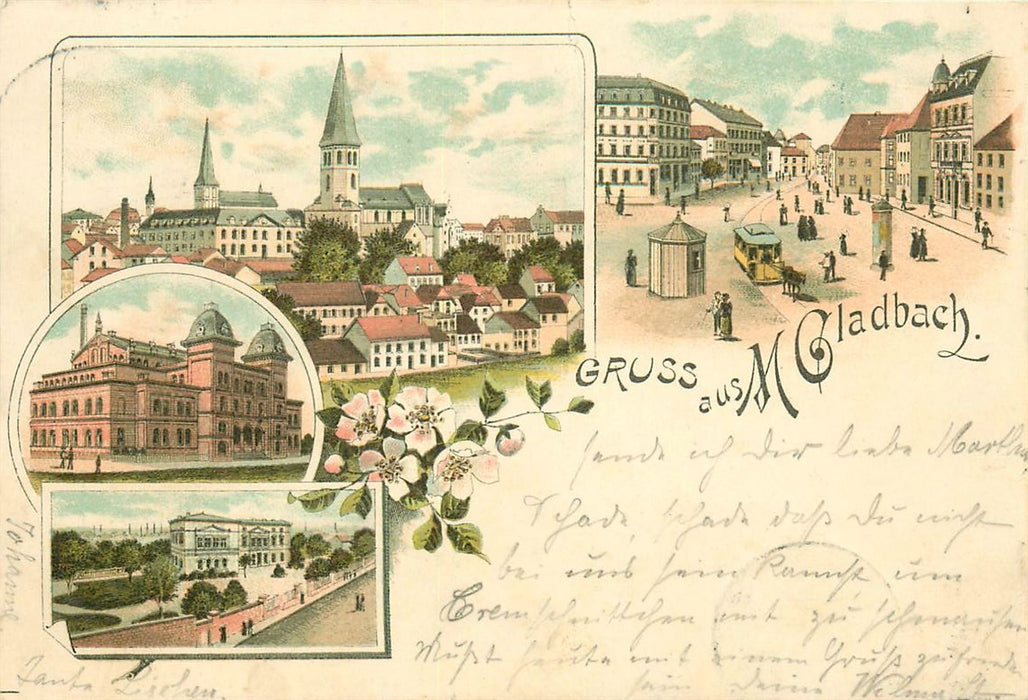 GRUSS aus M Gladbach.
sende ich Dir liebe Martha
Schade, schade daß Du nicht
bei uns sein kannst, um
Cremschnittchen mit zu schmausen
Mußt heute mit einem Gruß zufrieden
sein Deine
Johanne
Tante Lischen.